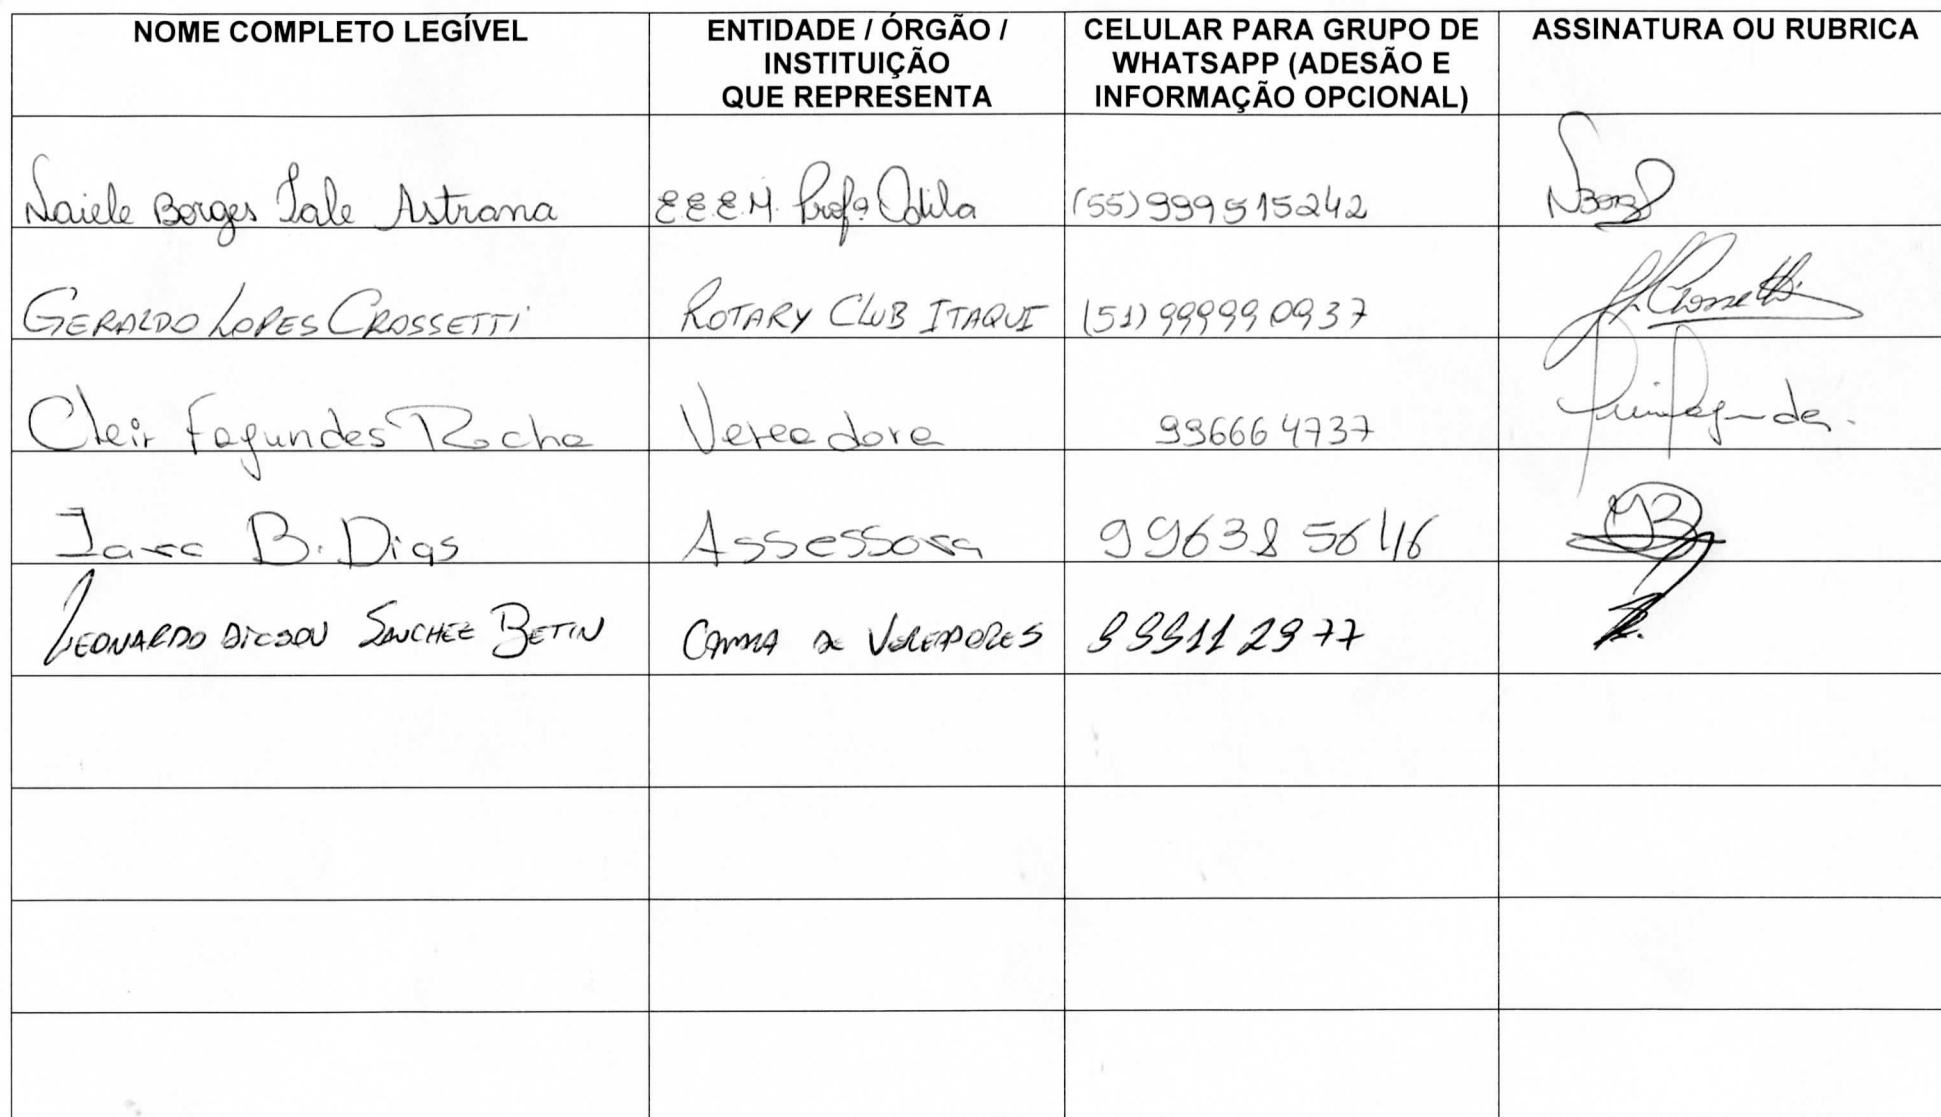 NOME COMPLETO LEGÍVEL
ENTIDADE / ÓRGÃO /
INSTITUIÇÃO
QUE REPRESENTA
CELULAR PARA GRUPO DE
WHATSAPP (ADESÃO E
INFORMAÇÃO OPCIONAL)
ASSINATURA OU RUBRICA
Naiele Borges Tale Astrana
E.E.E.M. Profª Odila
(55) 999515242
GERALDO LOPES CROSSETTI
ROTARY CLUB ITAQUI
(51) 999990937
Crossetti
Cleir Fagundes Rocha
Vereadora
996664737
Iara B. Dias
Assessora
996385646
LEONARDO DICSON SANCHEZ BETIN
CAMARA DE VEREADORES
999112977